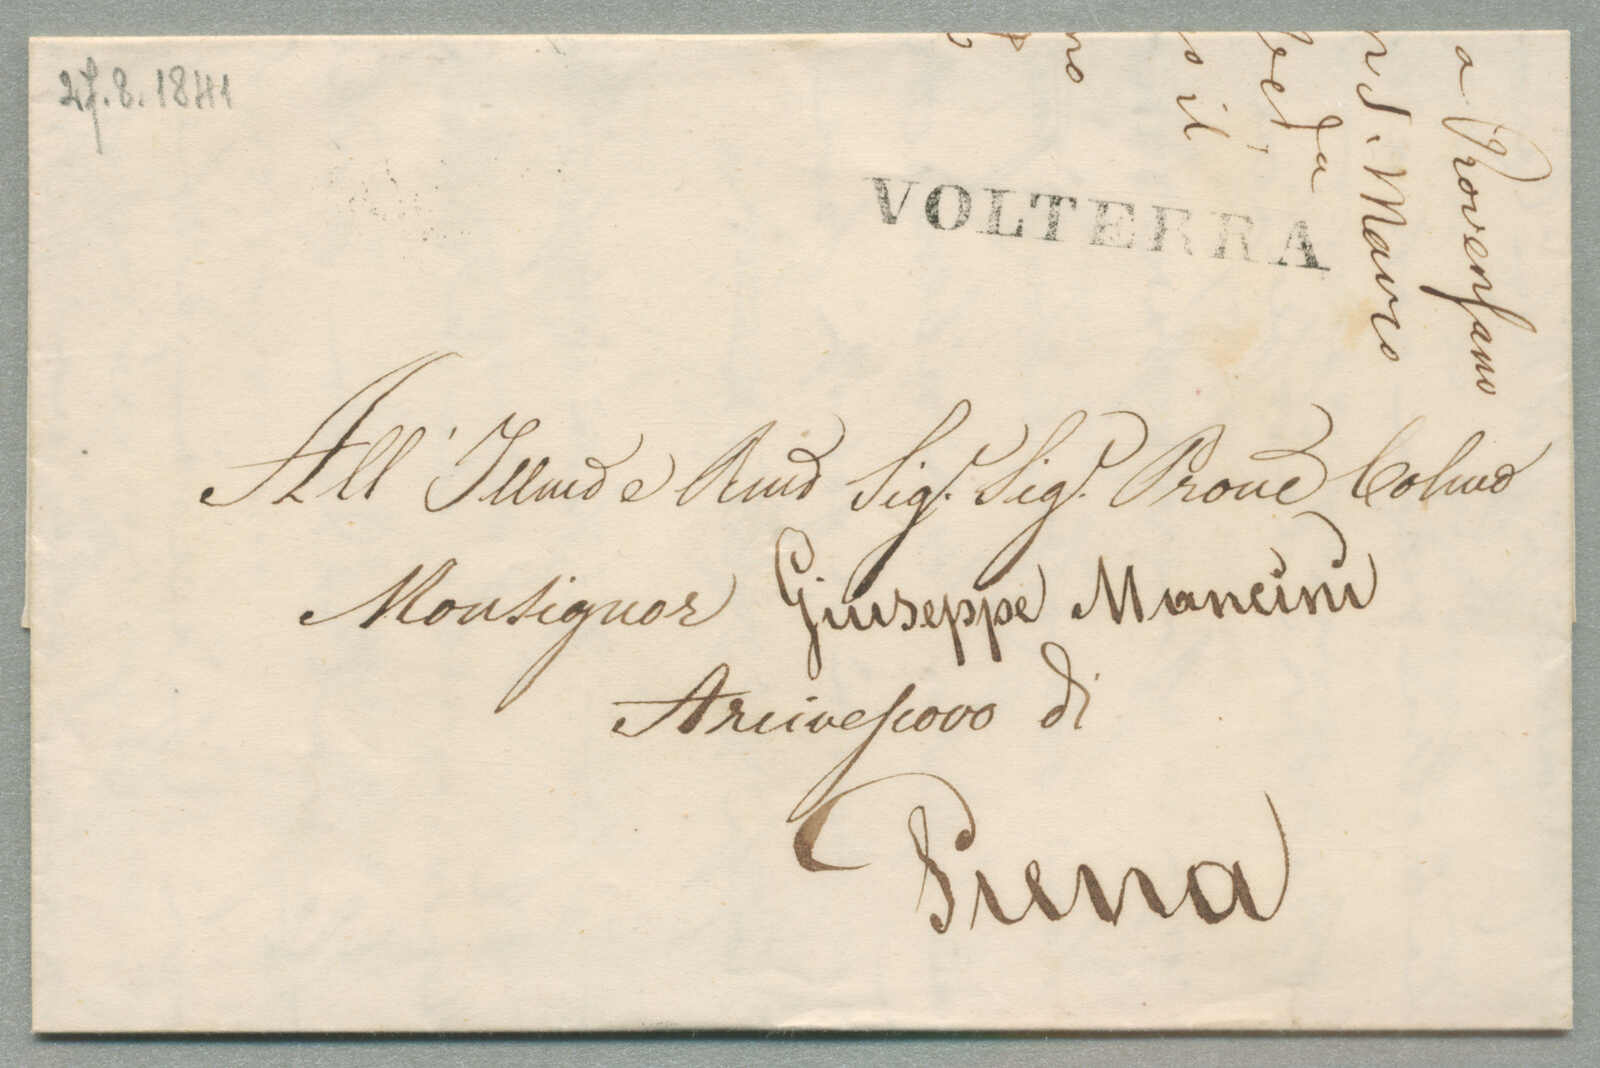 27.8.1841
VOLTERRA
a Provenzano
n S. Mauro
da
il
no
All' Illmo e Rmo Sig. Sig. Prone Colmo
Monsignor Giuseppe Mancini
Arcivescovo di
Siena